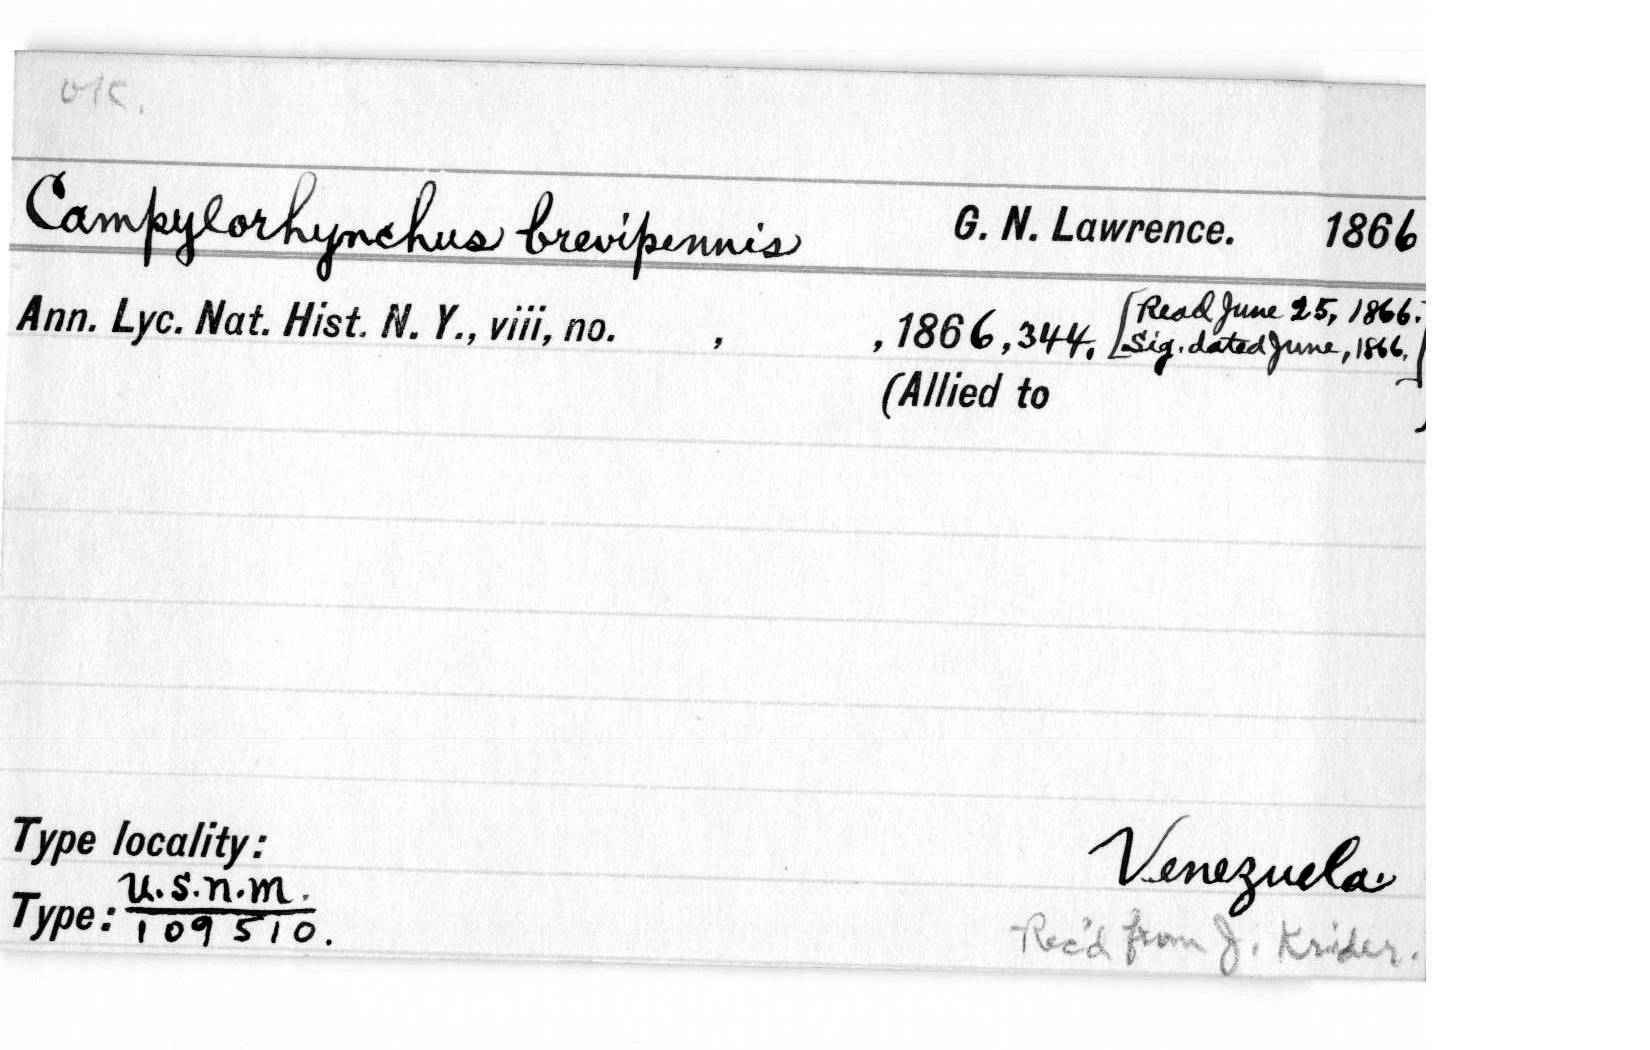 OK.
Campylorhynchus brevipennis G. N. Lawrence. 1866
Ann. Lyc. Nat. Hist. N. Y., viii, no. , , 1866, 344. [Read June 25, 1866.
Sig. dated June, 1866.]
(Allied to )
Type locality: Venezuela.
Type: U.S.N.M.
109510.
Rec'd from J. Krider.